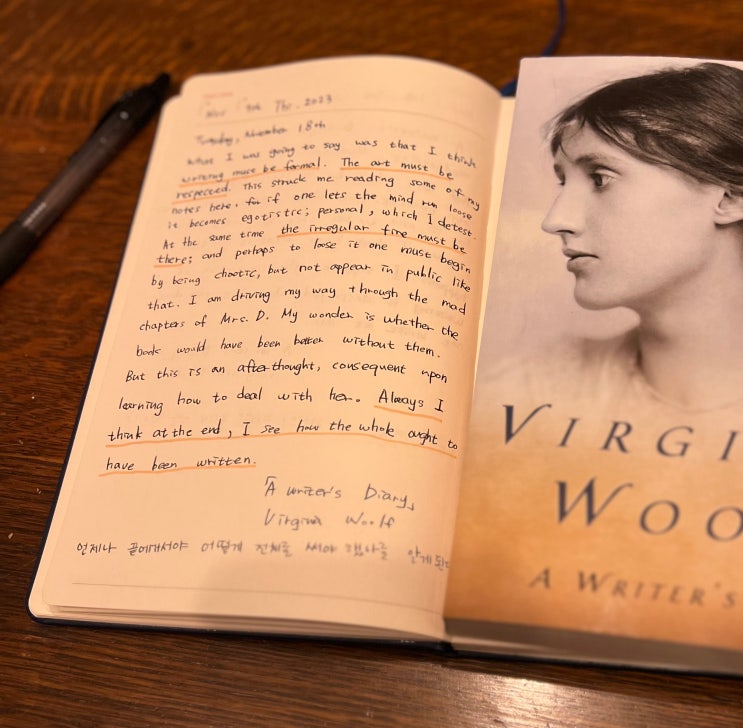 Nov 9th Thr. 2023
Tuesday, November 18th
What I was going to say was that I think
writing must be formal. The art must be
respected. This struck me reading some of my
notes here, for if one lets the mind run loose
it becomes egotistic; personal, which I detest.
At the same time the irregular fire must be
there; and perhaps to loose it one must begin
by being chaotic, but not appear in public like
that. I am driving my way through the mad
chapters of Mrs. D. My wonder is whether the
book would have been better without them.
But this is an afterthought, consequent upon
learning how to deal with her. Always I
think at the end, I see how the whole ought to
have been written.
「A writer's Diary」
Virginia Woolf
언제나 끝에대서야 어떻게 전체를 써야 했나를 알게된
VIRGI
WOO
A WRITER'S